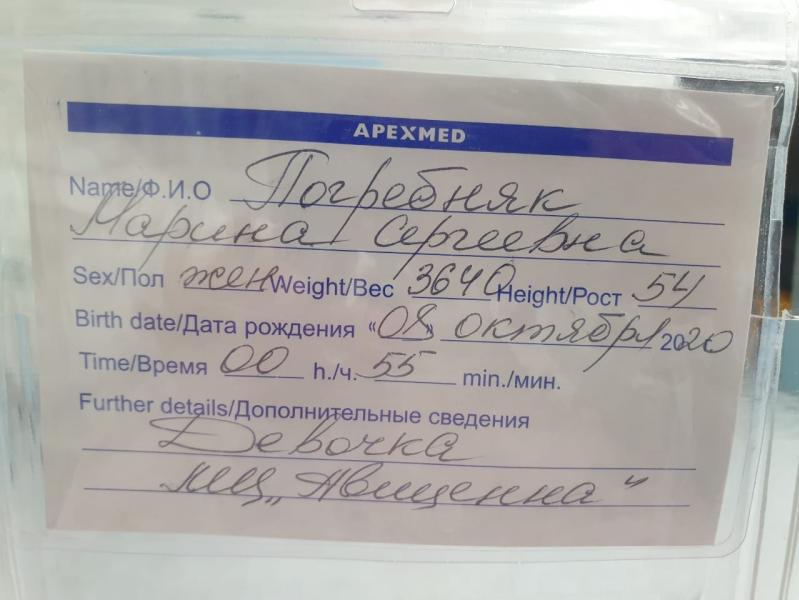 APEXMED
Name/Ф.И.О Погребняк
Марина Сергеевна
Sex/Пол жен Weight/Вес 3640 Height/Рост 54
Birth date/Дата рождения «08» октября 2020
Time/Время 00 h./ч. 55 min./мин.
Further details/Дополнительные сведения
Девочка
МЦ „Авиценна“